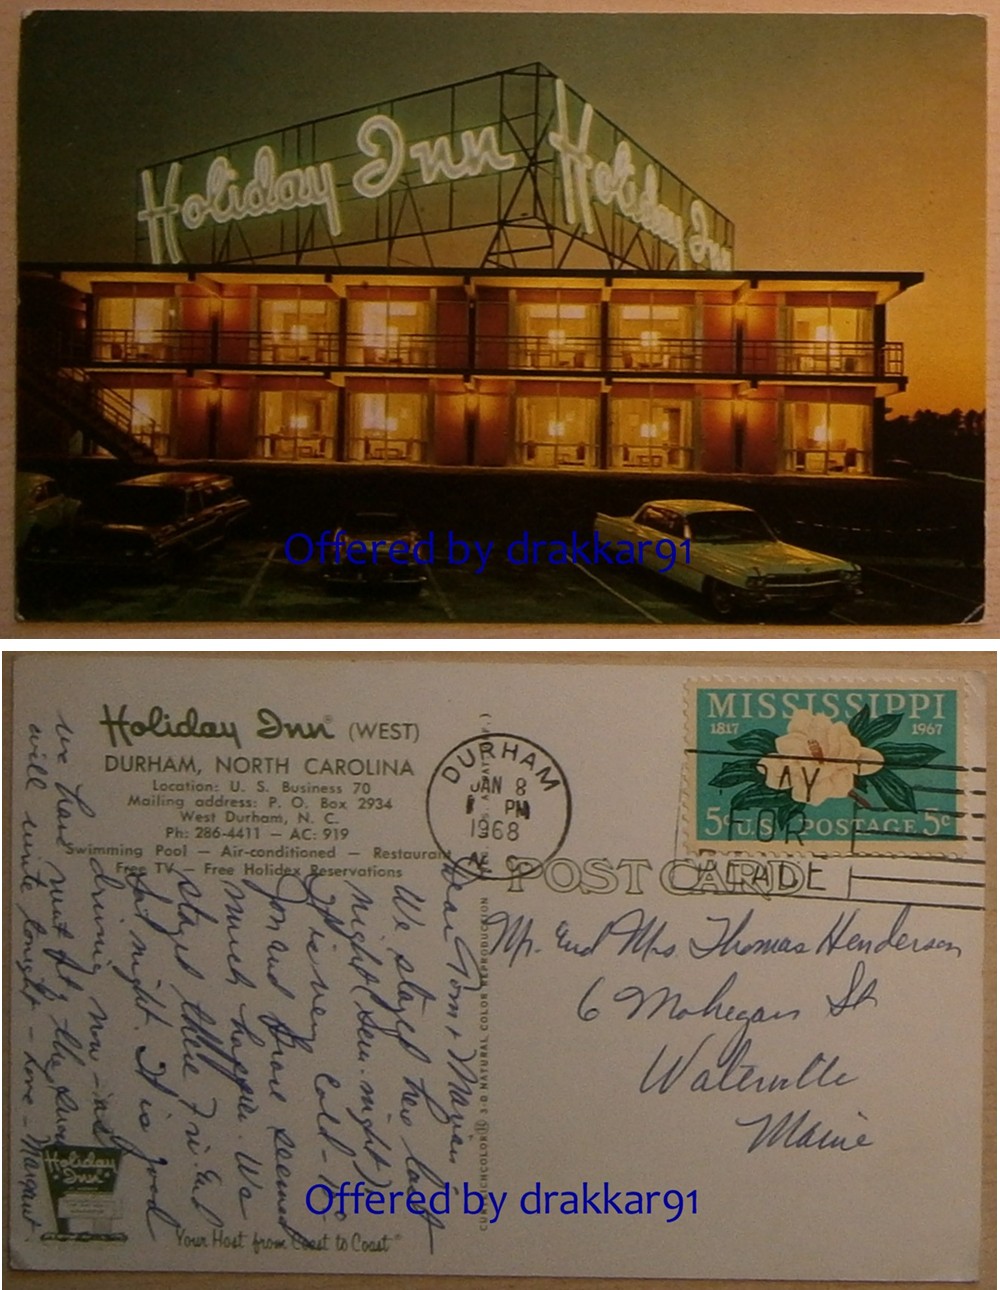 Holiday Inn
Holiday Inn
Offered by drakkar91
Holiday Inn® (WEST)
DURHAM, NORTH CAROLINA
Location: U. S. Business 70
Mailing address: P. O. Box 2934
West Durham, N. C.
Ph: 286-4411 — AC: 919
Swimming Pool — Air-conditioned — Restaurant
Free TV — Free Holidex Reservations
DURHAM
JAN 8
PM
1968
MISSISSIPPI
1817 1967
5c U.S. POSTAGE 5c
FOR
POST CARD
Dear Tom + Marian
We stayed here last
night (Sun. night)
It is very cold - 
Jon and seemed
much happier. We
stayed there Fri. and
Sat night. It is good
driving now - and
we have met by the
will write tonight - Love - Margaret
Mr. and Mrs. Thomas Henderson
6 Mohegan St
Waterville
Maine
3-D NATURAL COLOR REPRODUCTION
Holiday
Inn
Your Host from Coast to Coast®
Offered by drakkar91